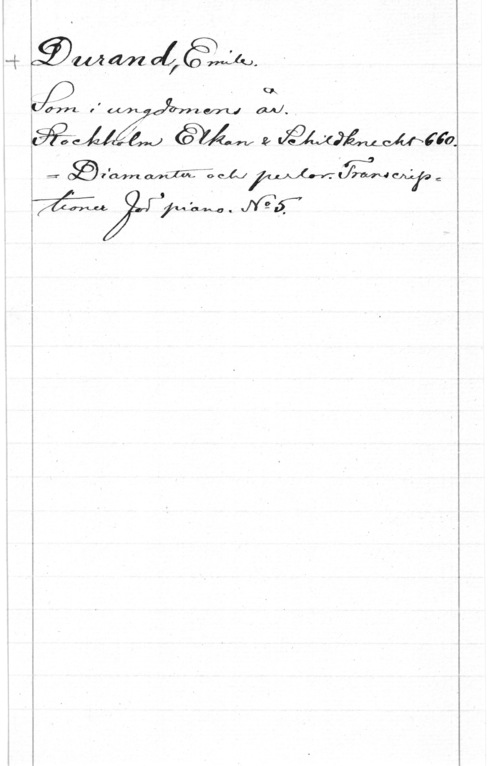 + Durand, Emile.
Som i ungdomens år.
Stockholm Elkan & Schildknecht 660.
= Diamanter och perlor. Transcrip=
tioner för piano. No 5.